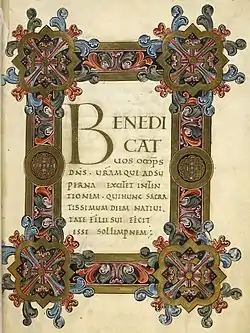 BENEDI
CAT
UOS OMPS
DNS · URAM QUE AD SU
PERNA EXCITET INTEN
TIONEM · QUI HUNC SACRA
TISSIMUM DIEM NATIVI
TATE FILII SUI FECIT
ESSE SOLLEMPNEM ;